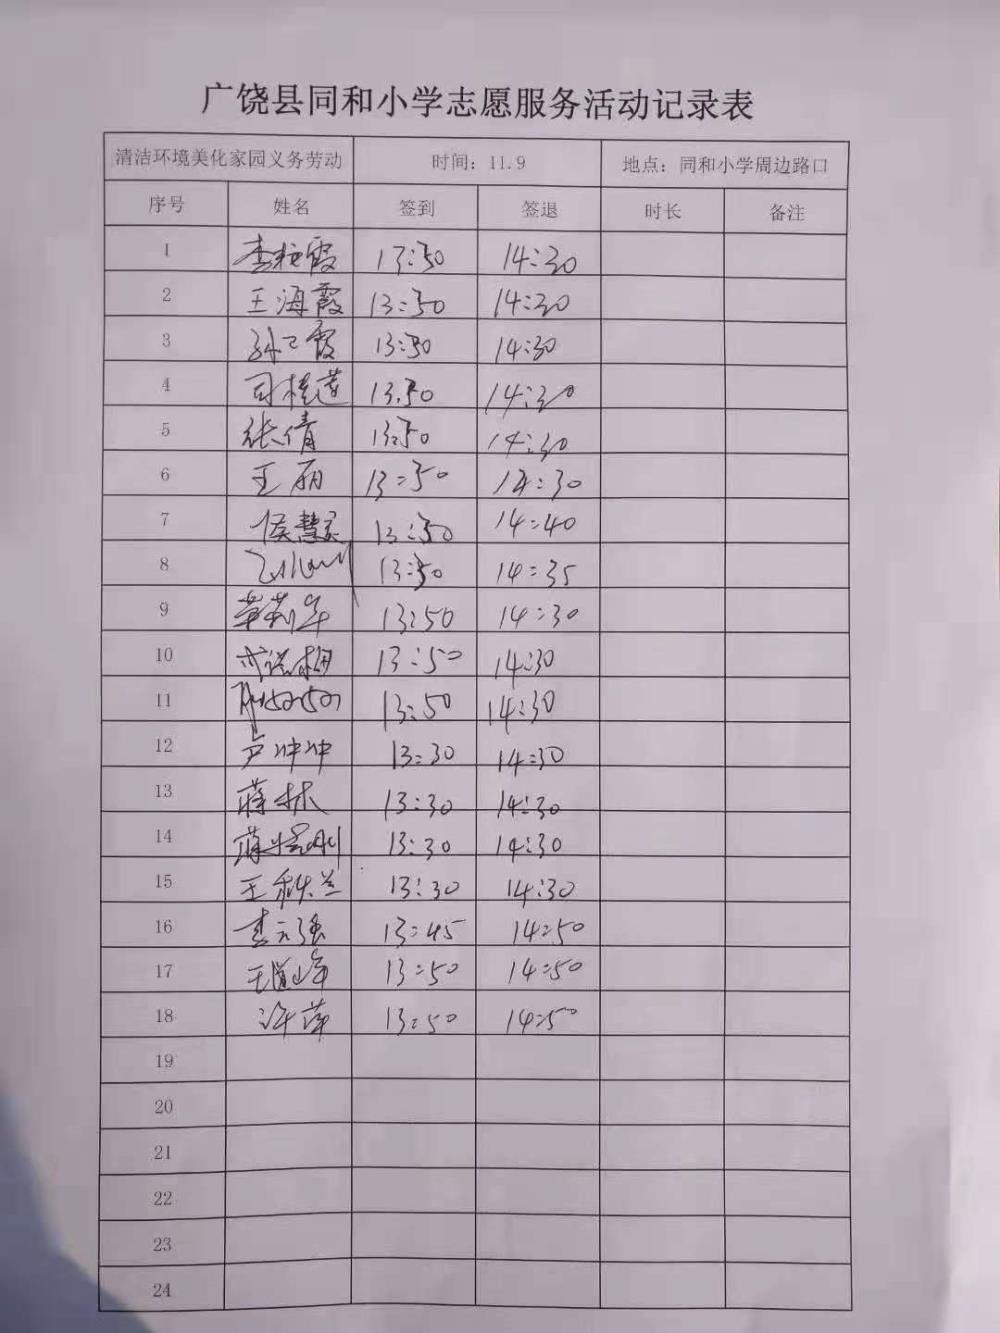 广饶县同和小学志愿服务活动记录表
清洁环境美化家园义务劳动 时间：11.9 地点：同和小学周边路口
序号 姓名 签到 签退 时长 备注
1 李 霞 13:50 14:30
2 王海霞 13:50 14:30
3 孙 霞 13:50 14:30
4 司桂莲 13.50 14:30
5 张倩 13:50 14:30
6 王丽 13:50 14:30
7 侯慧 13:50 14:40
8 13:50 14:35
9 13:50 14:30
10 梅 13:50 14:30
11 13:50 14:30
12 卢冲冲 13:30 14:30
13 蒋林 13:30 14:30
14 蒋 刚 13:30 14:30
15 王秋兰 13:30 14:30
16 李元强 13:45 14:50
17 王道峰 13:50 14:50
18 许萍 13:50 14:50
19
20
21
22
23
24